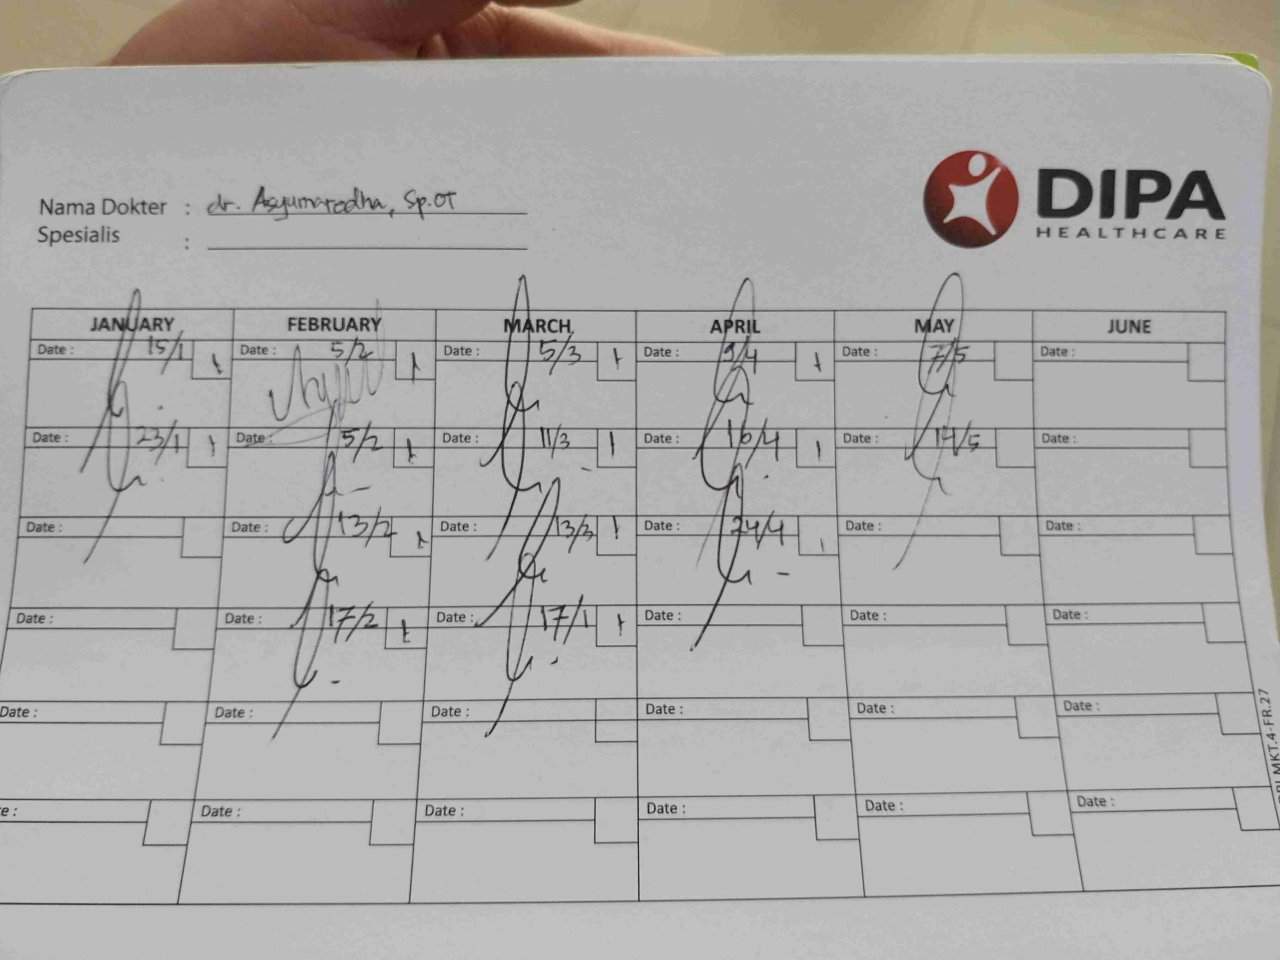 DIPA
HEALTHCARE
Nama Dokter : dr. Asyumaredha, Sp.OT
Spesialis :
JANUARY FEBRUARY MARCH APRIL MAY JUNE
Date : 15/1 1 Date : 5/2 1 Date : 5/3 1 Date : 9/4 1 Date : 7/5 Date :
Date : 23/1 1 Date : 5/2 1 Date : 11/3 1 Date : 16/4 1 Date : 14/5 Date :
Date : Date : 13/2 1 Date : 13/3 1 Date : 24/4 1 Date : Date :
Date : Date : 17/2 1 Date : 17/1 1 Date : Date : Date :
Date : Date : Date : Date : Date : Date :
Date : Date : Date : Date : Date :
MKT.4-FR.27